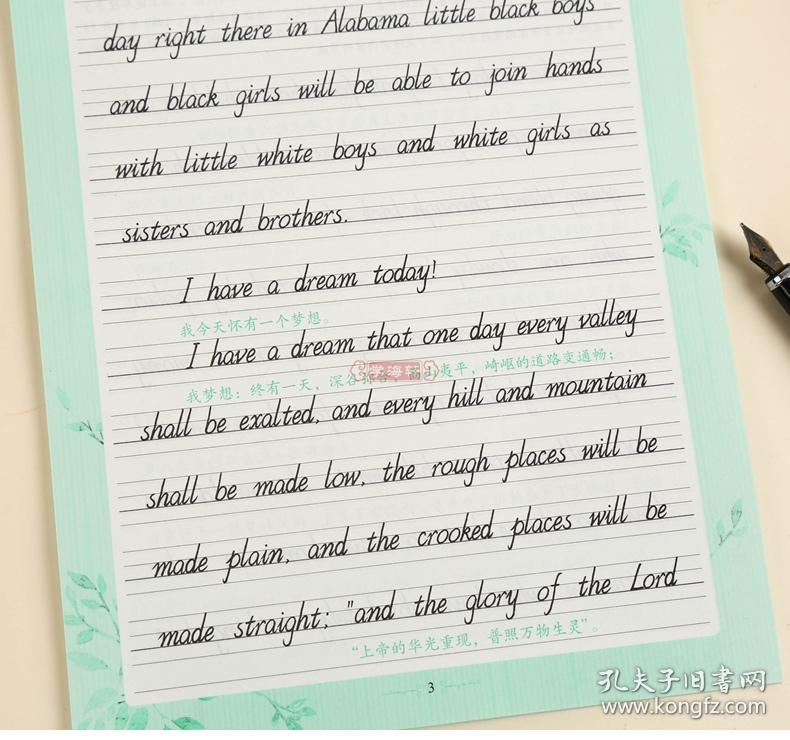 day right there in Alabama little black boys
and black girls will be able to join hands
with little white boys and white girls as
sisters and brothers.
I have a dream today!
我今天怀有一个梦想。
I have a dream that one day every valley
我梦想：终有一天，深谷弥合，高山夷平，崎岖的道路变通畅；
shall be exalted, and every hill and mountain
shall be made low, the rough places will be
made plain, and the crooked places will be
made straight; "and the glory of the Lord
“上帝的华光重现，普照万物生灵”。
3
孔夫子旧书网
www.kongfz.com